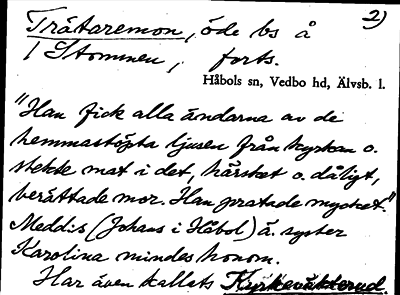 2)
Trätaremon, öde bs å
1 Stommen, forts.
Håbols sn, Vedbo hd, Älvsb. l.
"Han fick alla ändarna av de
hemmastöpta ljusen från kyrkan o.
stekte mat i det, härsket o. dåligt,
berättade mor. Han pratade mycket."
Medd:s (Johans i Håbol) ä. syster
Karolina mindes honom.
Har även kallats Kyrkevakterud.